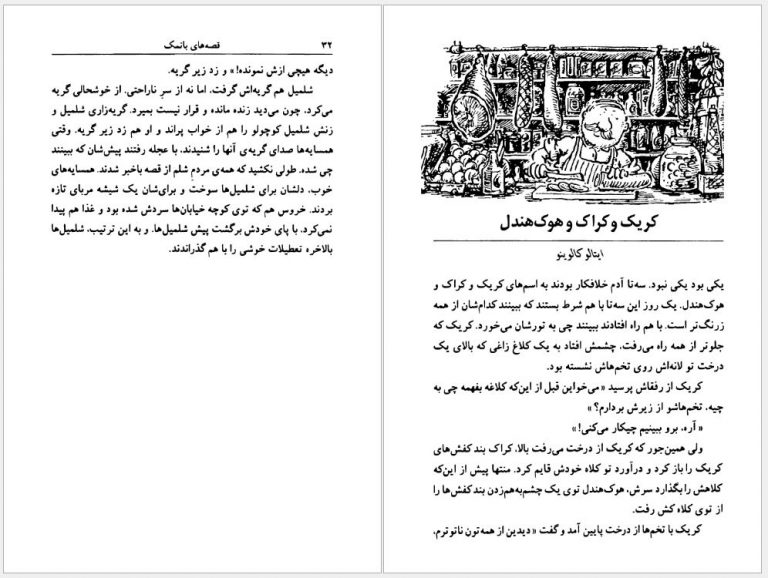 ۳۲ قصه‌های بانمک
دیگه هیچی ازش نمونده!» و زد زیر گریه.
شلمیل هم گریه‌اش گرفت، اما نه از سرِ ناراحتی. از خوشحالی گریه
می‌کرد. چون می‌دید زنده مانده و قرار نیست بمیرد. گریه‌زاری شلمیل و
زنش شلمیل کوچولو را هم از خواب پراند و او هم زد زیر گریه. وقتی
همسایه‌ها صدای گریه‌ی آنها را شنیدند، با عجله رفتند پیش‌شان که ببینند
چی شده. طولی نکشید که همه‌ی مردمِ شلم از قصه باخبر شدند. همسایه‌های
خوب، دلشان برای شلمیل‌ها سوخت و برای‌شان یک شیشه مربای تازه
بردند. خروس هم که توی کوچه خیابان‌ها سردش شده بود و غذا هم پیدا
نمی‌کرد، با پای خودش برگشت پیش شلمیل‌ها. و به این ترتیب، شلمیل‌ها
بالاخره تعطیلات خوشی را با هم گذراندند.
کریک و کراک و هوک‌هندل
ایتالو کالوینو
یکی بود یکی نبود. سه‌تا آدم خلافکار بودند به اسم‌های کریک و کراک و
هوک‌هندل. یک روز این سه‌تا با هم شرط بستند که ببینند کدام‌شان از همه
زرنگ‌تر است. با هم راه افتادند ببینند چی به تورشان می‌خورد. کریک که
جلوتر از همه راه می‌رفت، چشمش افتاد به یک کلاغ زاغی که بالای یک
درخت تو لانه‌اش روی تخم‌هاش نشسته بود.
کریک از رفقاش پرسید « می‌خواین قبل از این‌که کلاغه بفهمه چی به
چیه، تخم‌هاشو از زیرش بردارم؟ »
« آره، برو ببینیم چیکار می‌کنی! »
ولی همین‌جور که کریک از درخت می‌رفت بالا، کراک بند کفش‌های
کریک را باز کرد و درآورد تو کلاه خودش قایم کرد. منتها پیش از این‌که
کلاهش را بگذارد سرش، هوک‌هندل توی یک چشم‌به‌هم‌زدن بند کفش‌ها را
از توی کلاه کش رفت.
کریک با تخم‌ها از درخت پایین آمد و گفت « دیدین از همه‌تون ناتوترم،